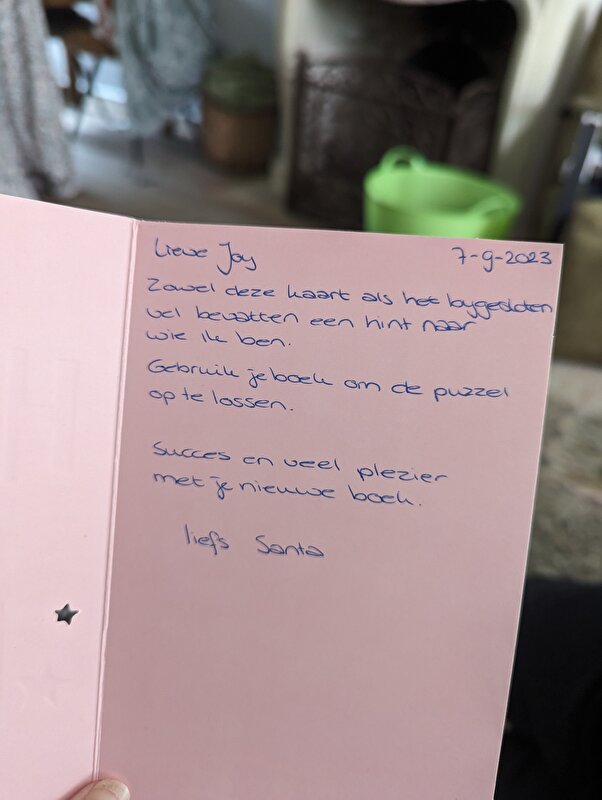 Lieve Joy
7-9-2023
Zowel deze kaart als het bygesloten
vel bevatten een hint naar
wie ik ben.
Gebruik je boek om de puzzel
op te lossen.
Succes en veel plezier
met je nieuwe boek.
liefs Santa